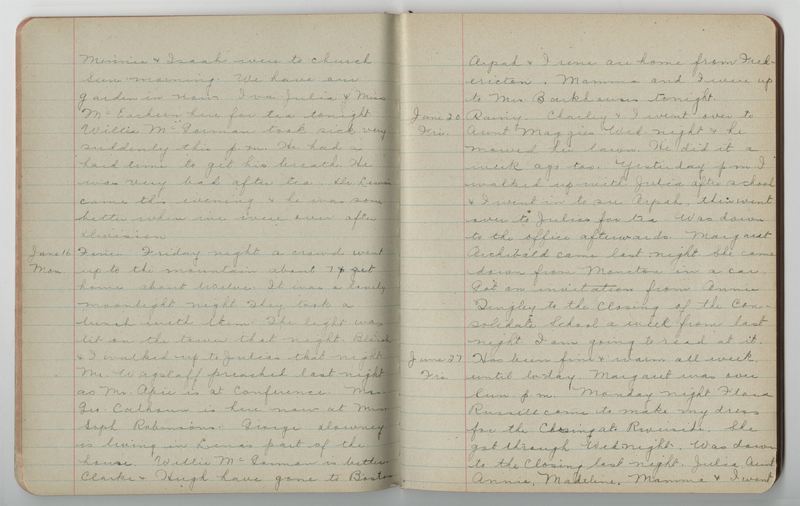 Minnie & Isaah were to church
Sun morning. We have our
garden in now. Iva Julia & Miss
McEachern here for tea tonight
Willie McGorman took sick very
suddenly this p.m. He had a
hard time to get his breath. He
was very bad after tea. Dr Lewis
came this evening & he was some
better when we were over after
division
June 16 Fine. Friday night a crowd went
Mon. up to the mountain about 7 & got
home about twelve. It was a lovely
moonlight night They took a
lunch with them. The light was
lit on the tower that night.
& I walked up to Julias that night
Mr. Wagstaff preached last night
as Mr. Opie is at Conference. Mrs
Geo. Calhoun is here now at Mrs
Seph Robinsons. George
is living in Lenas part of the
house. Willie McGorman is better
Clarke & Hugh have gone to Boston
Arpad & Irene are home from Fred-
ericton. Mamma and I were up
to Mrs Barkhouses tonight.
June 20 Rainy. Charley & I went over to
Fri. Aunt Maggies Wed night & he
mowed her lawn. He did it a
week ago too. Yesterday p.m. I
walked up with Julia after school
& I went in to see Arpad, then went
over to Julias for tea Was down
to the office afterwards. Margaret
Archibald came last night She came
down from Moncton in a car.
Got an invitation from Annie
Dingley to the Closing of the Con-
solidate School a week from last
night I am going to read at it.
June 27 Has been fine & warm all week
Fri until today. Margaret was over
Sun p.m. Monday night Flora
Russell came to make my dress
for the Closing at Riverside. She
got through Wed night. Was down
to the Closing last night. Julia, Aunt
Annie, Madeline, Mamma & I went